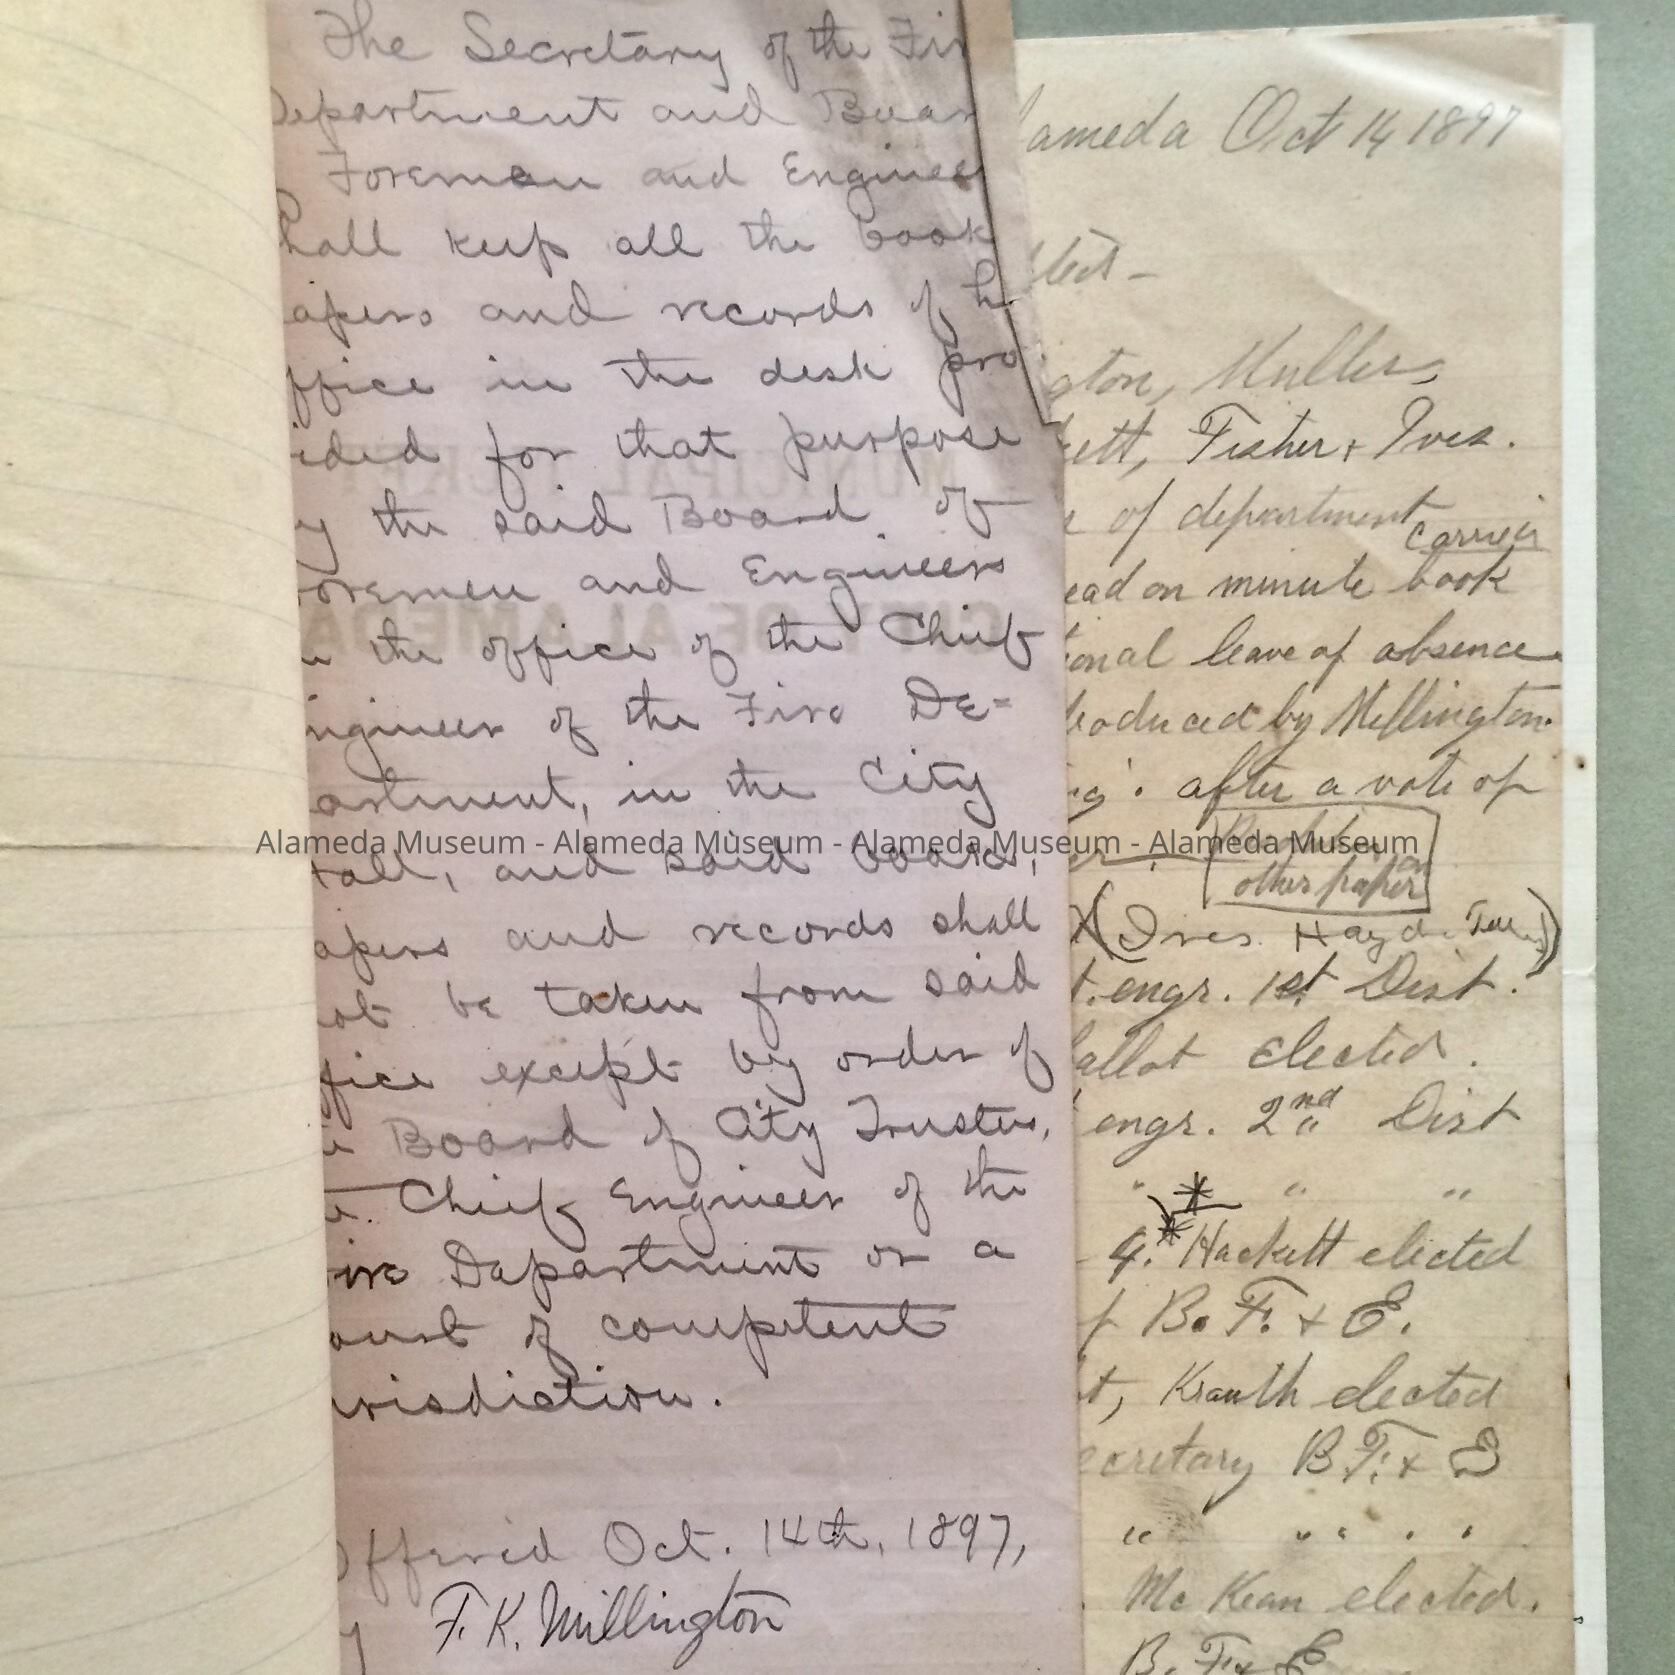 The Secretary of the Fir
Department and Boar
Foreman and Enginee
Shall keep all the book
apers and records of h
ffice in the desk pro
ided for that purpose
y the said Board of
oremen and Engineers
n the office of the Chief
ngineer of the Fire De-
artment, in the City
Hall, and said books,
apers and records shall
not be taken from said
ffice except by order of
e Board of City Trustees,
e. Chief Engineer of the
ire Department or a
ourt of competent
urisdiction.
Offered Oct. 14th, 1897,
y F. K. Millington
lameda Oct 14 1897
gton, Muller,
kett, Fisher & Ives.
of department
carried
ead on minute book
ional leave of absence
troduced by Millington.
after a vote of
other paper
(Ives Hayd
t. engr. 1st Dist.
allot elected.
engr. 2nd Dist
" " "
G. Hackett elected
f B. F. & E.
t, Krauth elected
ecretary B F. & E
" " " . .
Mc Kean elected.
B. F. & E
MUNICIPAL
CITY OF ALAMEDA
Alameda Museum - Alameda Museum - Alameda Museum - Alameda Museum